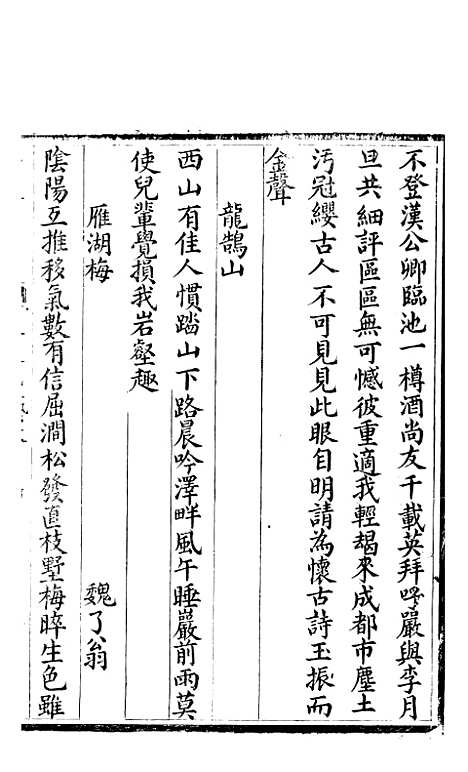 不登漢公卿臨池一樽酒尚友千載英拜呼嚴與李月
旦共細評區區無可憾彼重適我輕朅來成都市塵土
汚冠纓古人不可見見此眼自明請為懷古詩玉振而
金聲
龍鵠山
西山有佳人慣踏山下路晨吟澤畔風午睡巖前雨莫
使兒輩覺損我岩壑趣
雁湖梅 魏了翁
陰陽互推移氣數有信屈澗松發直枝墅梅晬生色雖